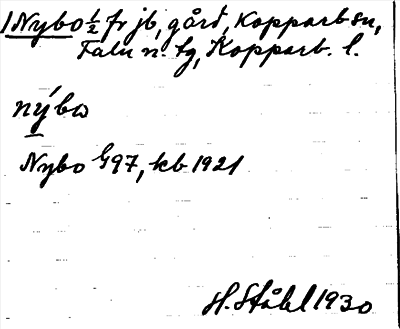 1 Nybo ½ fr jb, gård, Kopparb sn,
Falu n. tg, Kopparb. l.
nýbω
Nybo G97, kb 1921
H. Ståhl 1930